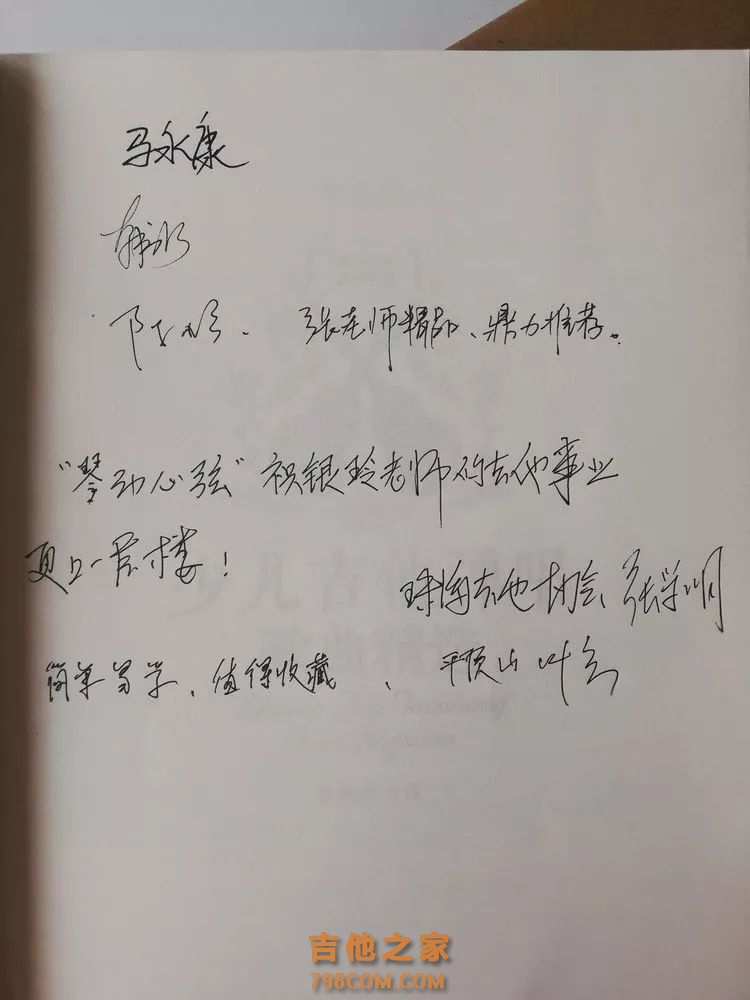 马永康
张老师精品、鼎力推荐。
"琴动心弦"祝银玲老师的吉他事业
更上一层楼!
珠海吉他协会 张学明
简单易学、值得收藏、平顶山 叶
少儿吉他弹唱
歌曲精选
吉他之家
798COM.COM